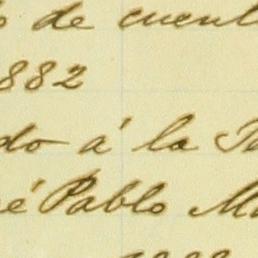 de cuent
882
do á la
é Pablo M